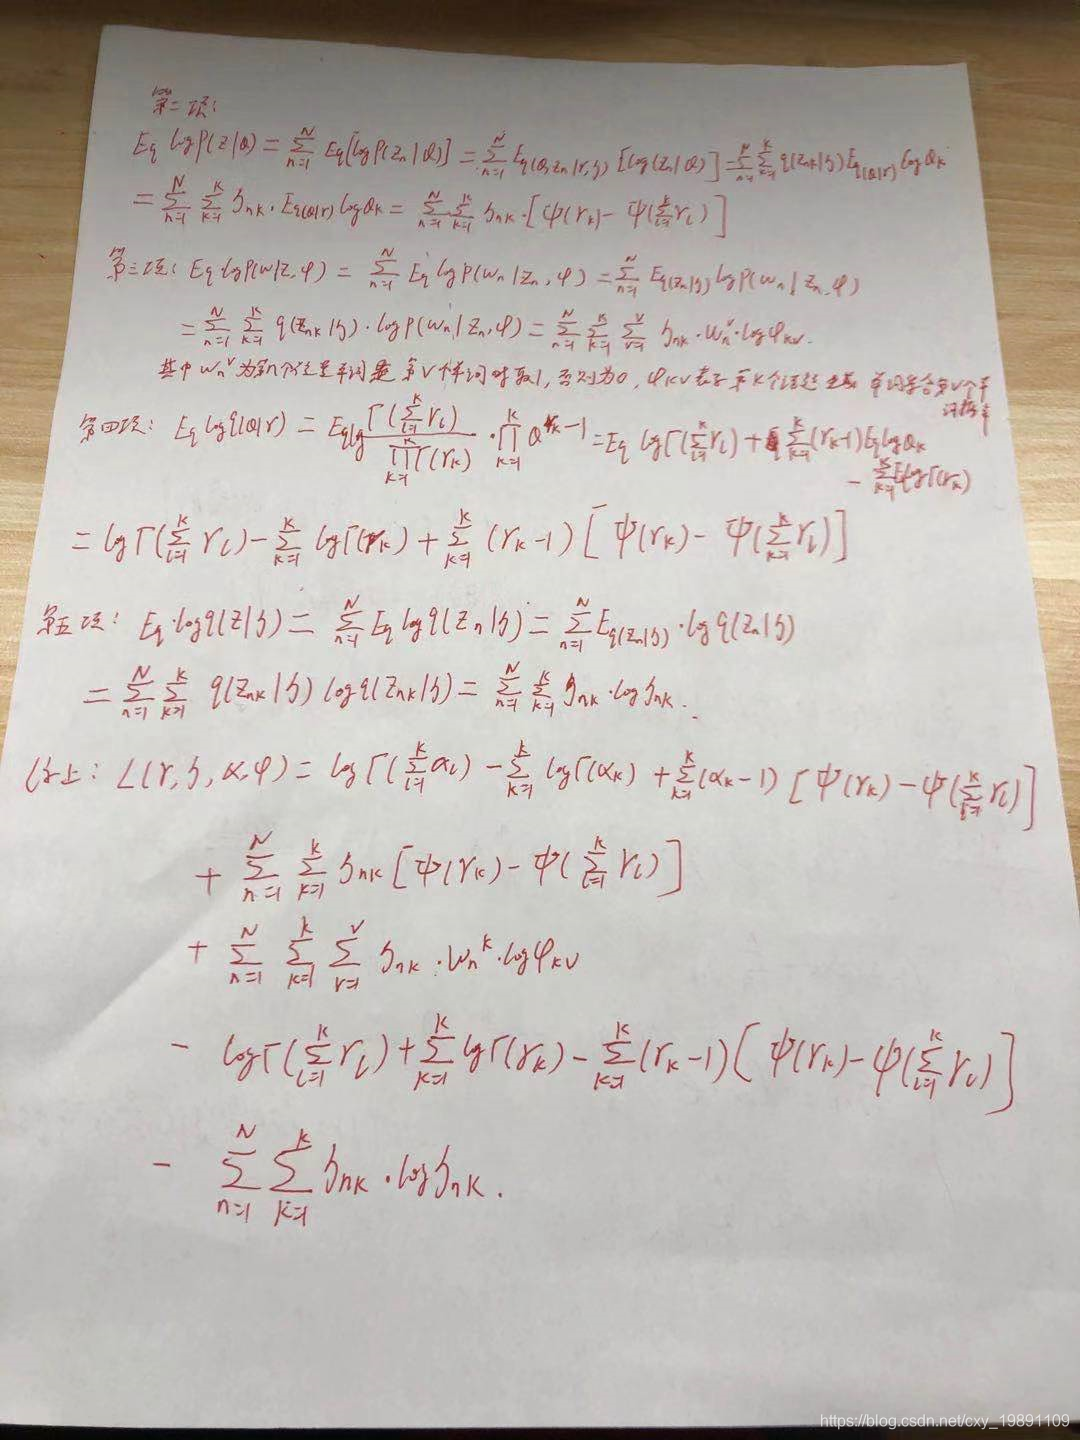 第二项:
Eq log P(z|θ) = ∑_{n=1}^{N} Eq[log P(z_n|θ)] = ∑_{n=1}^{N} E_{q(θ,z_n|r,ζ)} [log(z_n|θ)] = ∑_{n=1}^{N} ∑_{k=1}^{K} q(z_{nk}|ζ) E_{q(θ|r)} log θ_k
= ∑_{n=1}^{N} ∑_{k=1}^{K} ζ_{nk} · E_{q(θ|r)} log θ_k = ∑_{n=1}^{N} ∑_{k=1}^{K} ζ_{nk} · [ψ(r_k) - ψ(∑_{l=1}^{K} r_l)]
第三项: Eq log P(w|z,φ) = ∑_{n=1}^{N} Eq log P(w_n|z_n,φ) = ∑_{n=1}^{N} E_{q(z_n|ζ)} log P(w_n|z_n,φ)
= ∑_{n=1}^{N} ∑_{k=1}^{K} q(z_{nk}|ζ) · log P(w_n|z_n,φ) = ∑_{n=1}^{N} ∑_{k=1}^{K} ∑_{v=1}^{V} ζ_{nk} · w_n^v · log φ_{kv}.
其中 w_n^v 为第n个位置单词是第V个单词时取1, 否则为0, φ_{kv} 表示第K个话题 单词集合第V个单
词概率
第四项: Eq log q(θ|r) = Eq log Γ(∑_{l=1}^{K} r_l) / ∏_{k=1}^{K} Γ(r_k) · ∏_{k=1}^{K} θ^{r_k-1} = Eq log Γ(∑_{l=1}^{K} r_l) + ∑_{k=1}^{K} (r_k-1) Eq log θ_k
- ∑_{k=1}^{K} Eq log Γ(r_k)
= log Γ(∑_{l=1}^{K} r_l) - ∑_{k=1}^{K} log Γ(r_k) + ∑_{k=1}^{K} (r_k-1) [ψ(r_k) - ψ(∑_{k=1}^{K} r_l)]
第五项: Eq · log q(z|ζ) = ∑_{n=1}^{N} Eq log q(z_n|ζ) = ∑_{n=1}^{N} E_{q(z_n|ζ)} · log q(z_n|ζ)
= ∑_{n=1}^{N} ∑_{k=1}^{K} q(z_{nk}|ζ) log q(z_{nk}|ζ) = ∑_{n=1}^{N} ∑_{k=1}^{K} ζ_{nk} · log ζ_{nk}.
综上: L(r,ζ,α,φ) = log Γ(∑_{l=1}^{K} α_l) - ∑_{k=1}^{K} log Γ(α_k) + ∑_{k=1}^{K} (α_k-1) [ψ(r_k) - ψ(∑_{l=1}^{K} r_l)]
+ ∑_{n=1}^{N} ∑_{k=1}^{K} ζ_{nk} [ψ(r_k) - ψ(∑_{l=1}^{K} r_l)]
+ ∑_{n=1}^{N} ∑_{k=1}^{K} ∑_{v=1}^{V} ζ_{nk} · w_n^k · log φ_{kv}
- log Γ(∑_{l=1}^{K} r_l) + ∑_{k=1}^{K} log Γ(r_k) - ∑_{k=1}^{K} (r_k-1) [ψ(r_k) - ψ(∑_{l=1}^{K} r_l)]
- ∑_{n=1}^{N} ∑_{k=1}^{K} ζ_{nk} · log ζ_{nk}.
https://blog.csdn.net/cxy_19891109